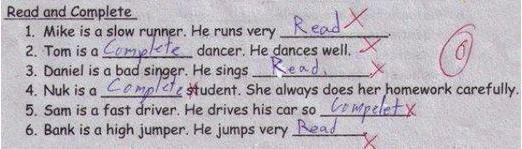 Read and Complete
1. Mike is a slow runner. He runs very Read.
2. Tom is a Complete dancer. He dances well.
3. Daniel is a bad singer. He sings Read.
4. Nuk is a Complete student. She always does her homework carefully.
5. Sam is a fast driver. He drives his car so Compelet
6. Bank is a high jumper. He jumps very Read
0